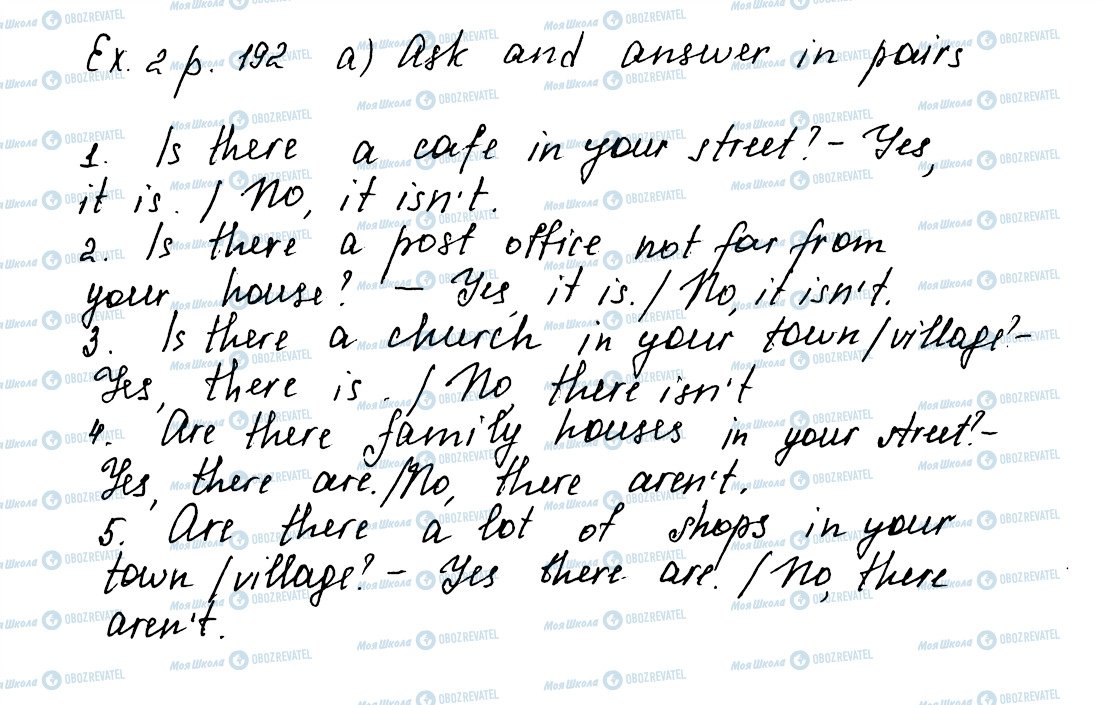 Ex. 2 p. 192 a) Ask and answer in pairs
1. Is there a cafe in your street? - Yes,
it is. / No, it isn't.
2. Is there a post office not far from
your house? - Yes, it is. / No, it isn't.
3. Is there a church in your town/village? -
Yes, there is. / No, there isn't
4. Are there family houses in your street? -
Yes, there are. / No, there aren't.
5. Are there a lot of shops in your
town/village? - Yes there are. / No, there
aren't.
МояШкола OBOZREVATEL